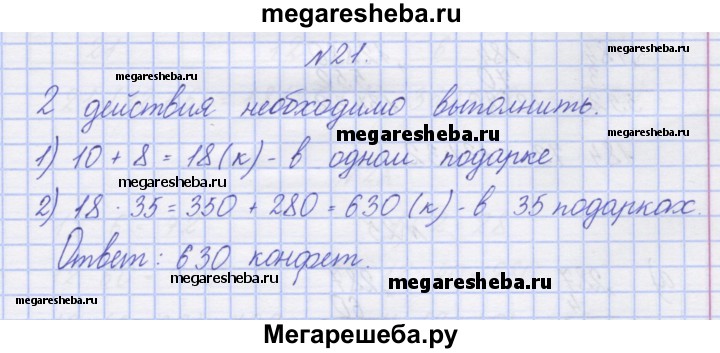 megaresheba.ru
№21.
megaresheba.ru
2 действия необходимо выполнить.
megaresheba.ru
1) 10 + 8 = 18 (к) - в одном подарке
megaresheba.ru
2) 18 · 35 = 350 + 280 = 630 (к) - в 35 подарках.
megaresheba.ru
Ответ: 630 конфет.
megaresheba.ru
megaresheba.ru
Мегарешеба.ру